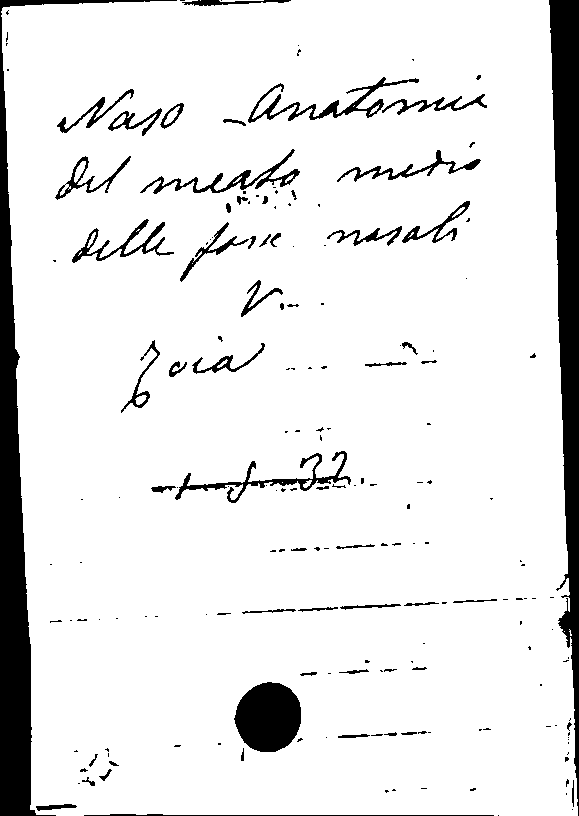 Naso - Anatomia
del meato medio
delle fosse nasali
V.
Zoia
1 f 32